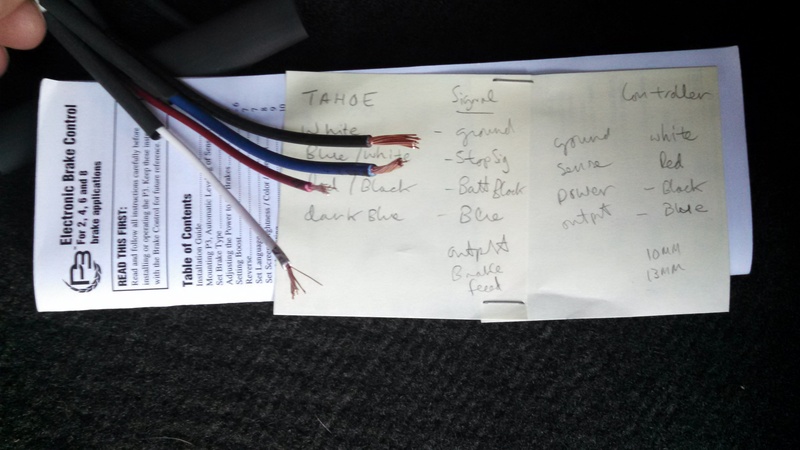 P3
Electronic Brake Control
For 2, 4, 6 and 8
brake applications
READ THIS FIRST:
Read and follow all instructions carefully before
installing or operating the P3. Keep these
with the Brake Control for future reference.
Table of Contents
Installation Guide
Mounting P3, Automatic of
Set Brake Type
Adjusting the Power to Brakes
Setting Boost
Reverse
Set Language
Set / Color
6
7
8
9
10
TAHOE Signal Controller
White - ground
Blue/White - StopSg
Red/Black - Batt Black
dark Blue - Blue
output
Brake
feed
ground white
Sense Red
power - Black
output - Blue
10MM
13MM